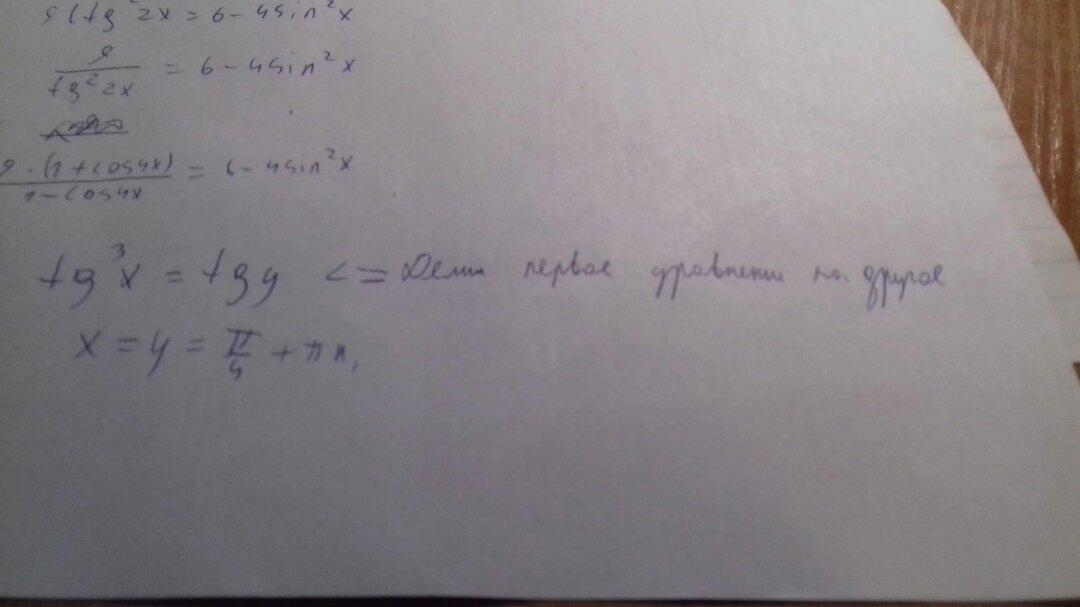 9ctg²2x = 6 - 4sin²x
9/tg²2x = 6 - 4sin²x
9·(1+cos4x)/1-cos4x = 6 - 4sin²x
tg³x = tgy <= Делим первое уравнение на другое
x = y = π/4 + πn,